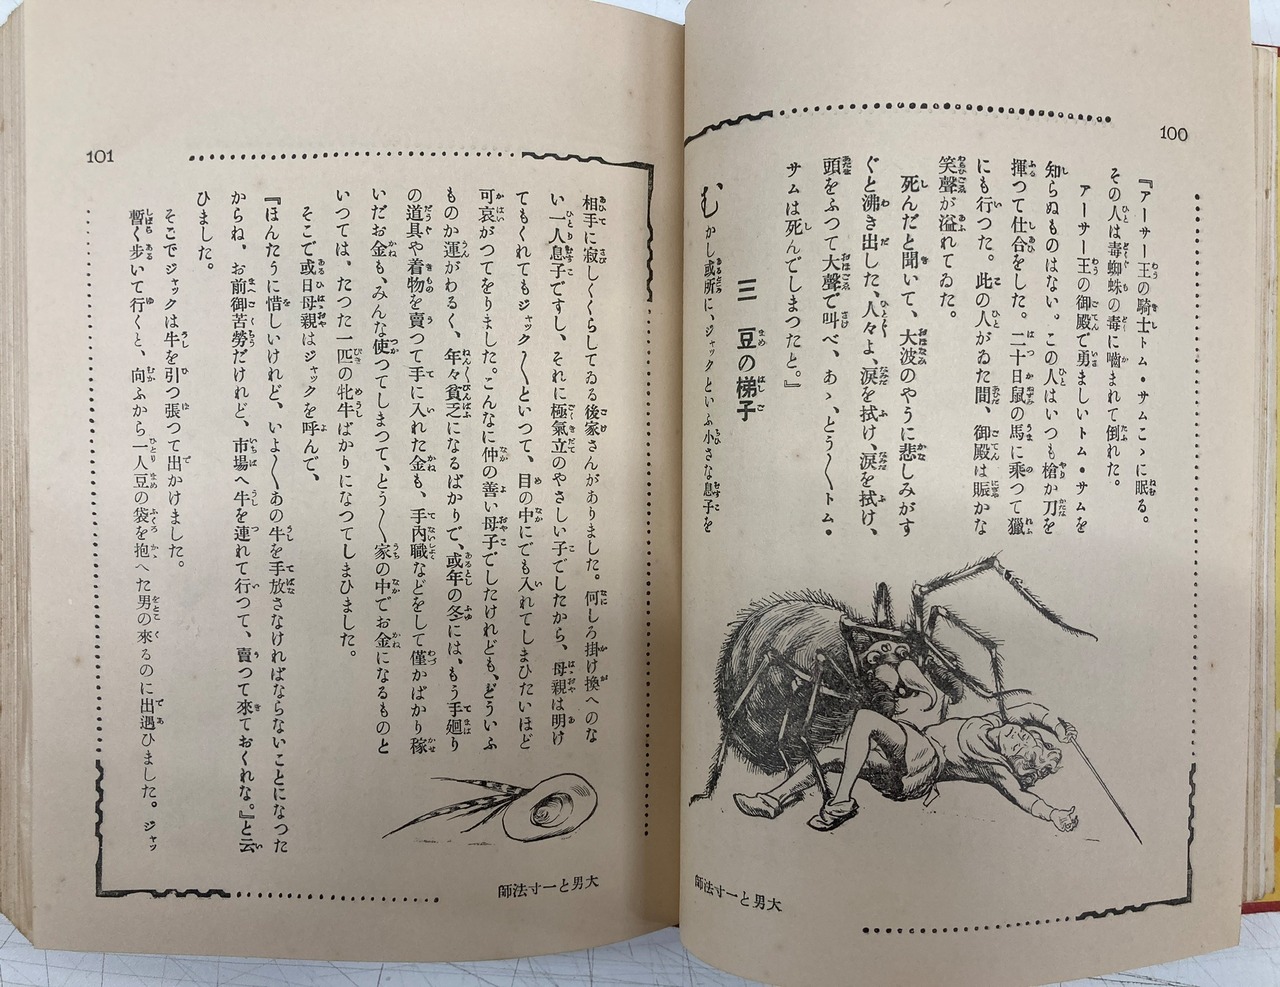 100
『アーサー王の騎士トム・サムこゝに眠る。
その人は毒蜘蛛の毒に嚙まれて倒れた。
アーサー王の御殿で勇ましいトム・サムを
知らぬものはない。この人はいつも槍か刀を
揮つて仕合をした。二十日鼠の馬に乘つて獵
にも行つた。此の人がゐた間、御殿は賑かな
笑聲が溢れてゐた。
死んだと聞いて、大波のやうに悲しみがす
ぐと沸き出した、人々よ、淚を拭け、淚を拭け、
頭をふつて大聲で叫べ、あゝ、とう〳〵トム・
サムは死んでしまつたと。』
三 豆の梯子
むかし或所に、ジャックといふ小さな息子を
大男と一寸法師
101
相手に寂しくくらしてゐる後家さんがありました。何しろ掛け換へのな
い一人息子ですし、それに極氣立のやさしい子でしたから、母親は明け
てもくれてもジャック〳〵といつて、目の中にでも入れてしまひたいほど
可哀がつてをりました。こんなに仲の善い母子でしたけれども、どういふ
ものか運がわるく、年々貧乏になるばかりで、或年の冬には、もう手廻り
の道具や着物を賣つて手に入れた金も、手內職などをして僅かばかり稼
いだお金も、みんな使つてしまつて、とう〳〵家の中でお金になるものと
いつては、たつた一匹の牝牛ばかりになつてしまひました。
そこで或日母親はジャックを呼んで、
『ほんたうに惜しいけれど、いよ〳〵あの牛を手放さなければならないことになつた
からね、お前御苦勞だけれど、市場へ牛を連れて行つて、賣つて來ておくれな。』と云
ひました。
そこでジャックは牛を引つ張つて出かけました。
暫く步いて行くと、向ふから一人豆の袋を抱へた男の來るのに出遇ひました。ジャッ
大男と一寸法師